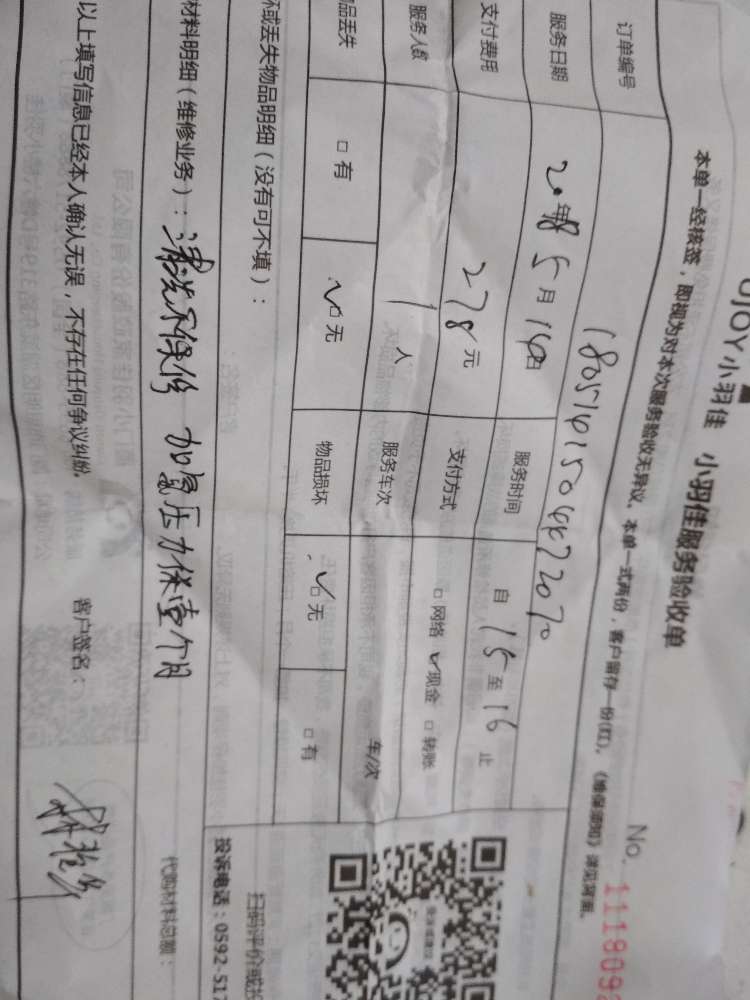 UJOY小羽佳 小羽佳服务验收单
No. 1118098
本单一经核签，即视为对本次服务验收无异议。本单一式两份，客户留存一份(红)。《维保须知》详见背面。
订单编号 1805141504472070
服务日期 20 年 5月14日 服务时间 自 15 至 16 止
支付费用 278元 支付方式 □网络 ✓现金 □转账
服务人数 1 人 服务车次 车/次
品丢失 □有 ✓□无 物品损坏 ✓□无 □有
坏或丢失物品明细（没有可不填）：
扫码评价或投
投诉电话：0592-517
材料明细（维修业务）：清洗不保修 加氟压力保壹个月 代购材料总额：
以上填写信息已经本人确认无误，不存在任何争议纠纷。 客户签名：